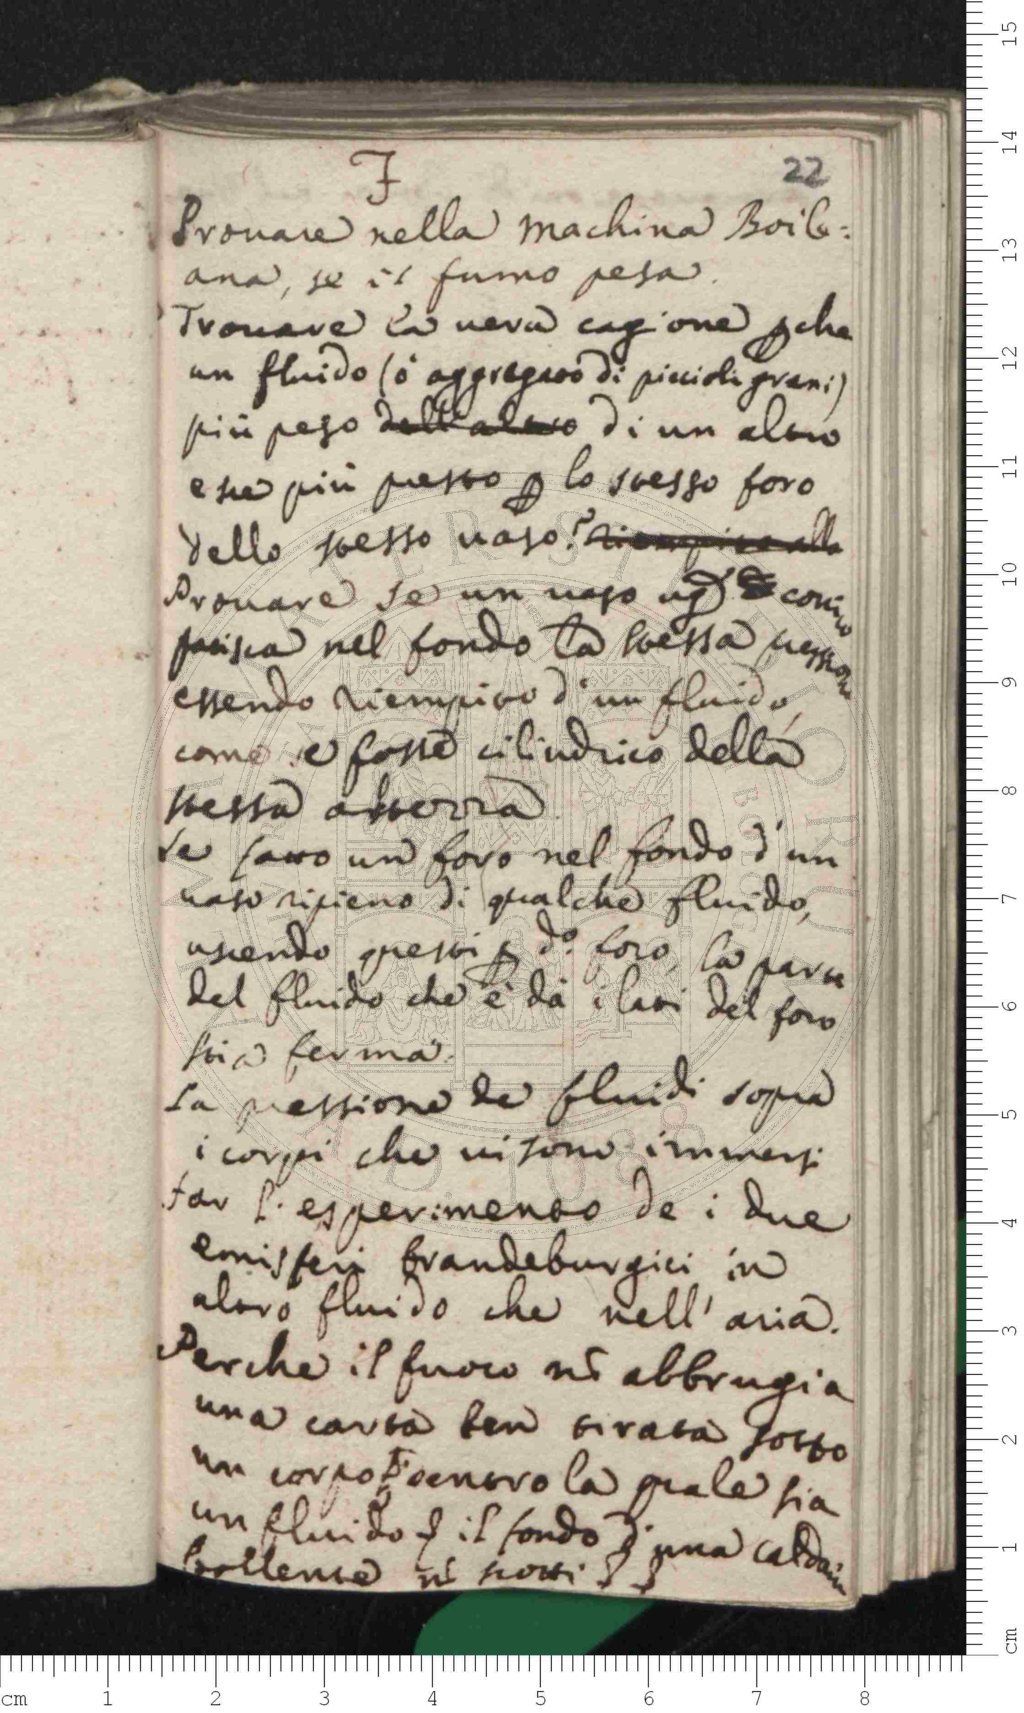 F
22
Provare nella machina Boile-
ana, se il fumo pesa.
Trovare la vera cagione pche
un fluido (ò aggregato di piccioli grani)
più peso dell'altro di un altro
esce più presto p lo stesso foro
dello stesso vaso? riempire alla
Provare se un vaso conico
patisca nel fondo la stessa pressione
essendo riempito d'un fluido,
come se fosse cilindrico della
stessa altezza
Se fatto un foro nel fondo d'un
vaso ripieno di qualche fluido,
uscendo questi p do. foro, la parte
del fluido che è dà i lati del foro
stia ferma.
La pressione de fluidi sopra
i corpi che vi sono immersi
Far l'esperimento de i due
emisferi brandeburgici in
altro fluido che nell'aria.
Perche il fuoco nō abbrugia
una carta ben tirata sotto
un corpo dentro la quale sia
un fluido il fondo d'una caldaia
bollente nō scotti